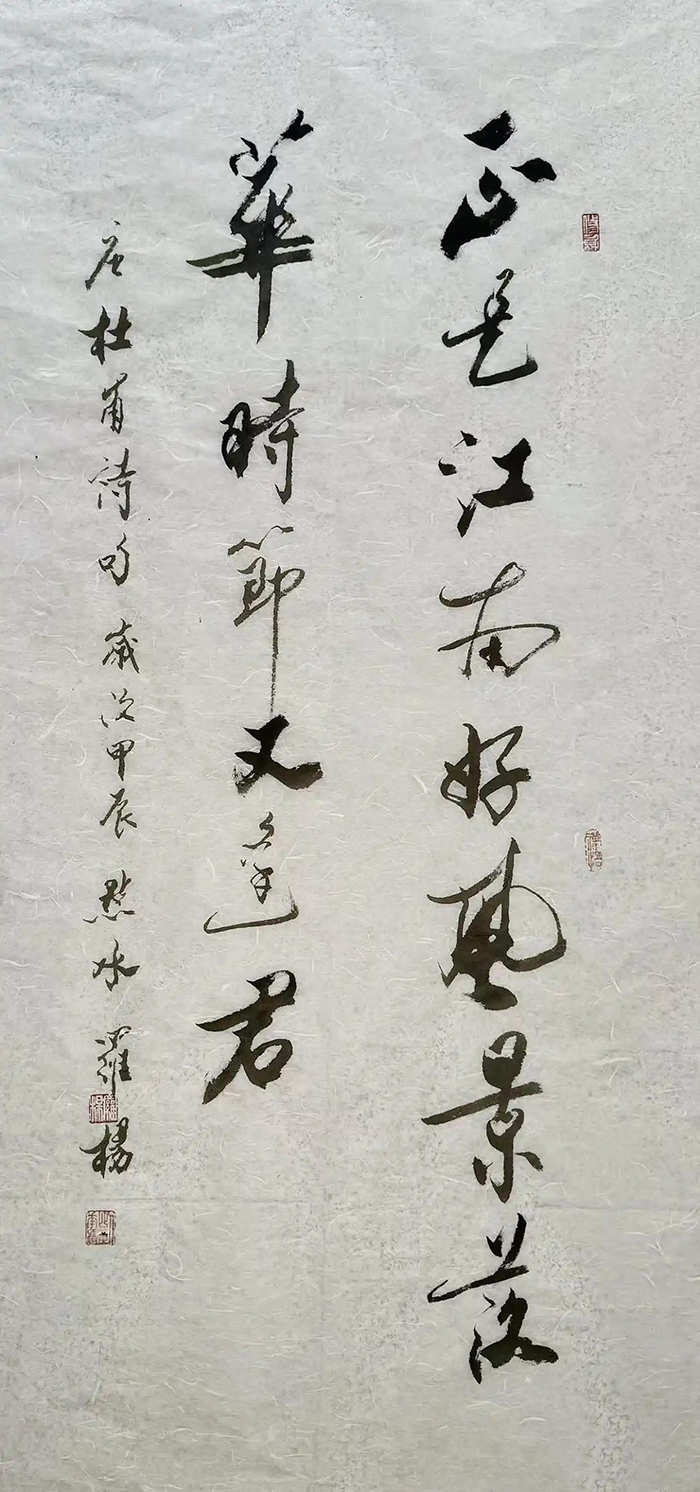 正是江南好風景落
華時節又逢君
唐杜甫詩句 歲次甲辰 點水 羅楊